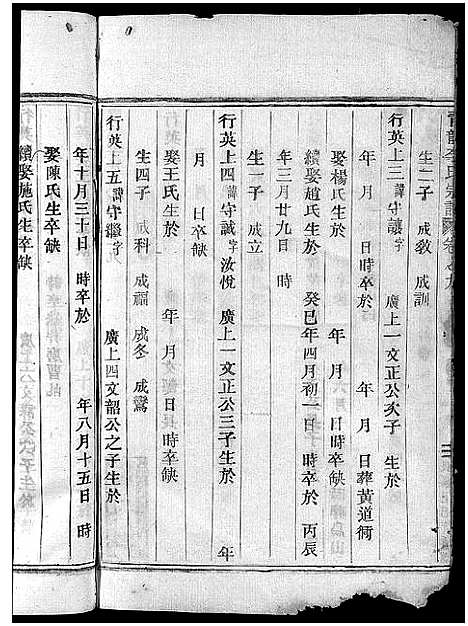 生二子 成教 成訓
行英上三 諱守讓 字 廣上一文正公次子 生於
年 月 日時卒於 年 月 日葬黃道衕
娶楊氏生於 年 月 日時卒缺
續娶趙氏生於 癸巳年四月初一日時卒於 丙辰
年三月廿九日 時
生一子 成立
行英上四 諱守誠 字汝悅 廣上一文正公三子生於 年
月 日卒缺
娶王氏生於 年 月 日時卒缺
生四子 成科 成福 成冬 成鸞
行英上五 諱守繼 字 廣上四文韶公之子生於
年十月三十日 時卒於 年八月十五日 時
娶陳氏生卒缺
續娶施氏生卒缺